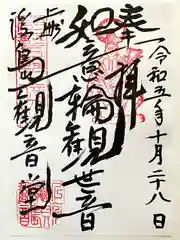 奉拝
令和五年十月二十八日
如意輪観世音
上州
浮島観音堂